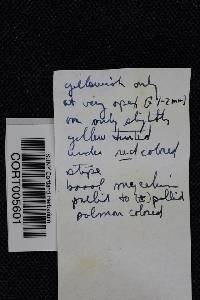 yellowish only
at very apex (2 1-2mm)
or only slightly
yellow tinted
under red colored
stipe
basal mycelium
pallid to (±) pallid
salmon colored
CORT005601